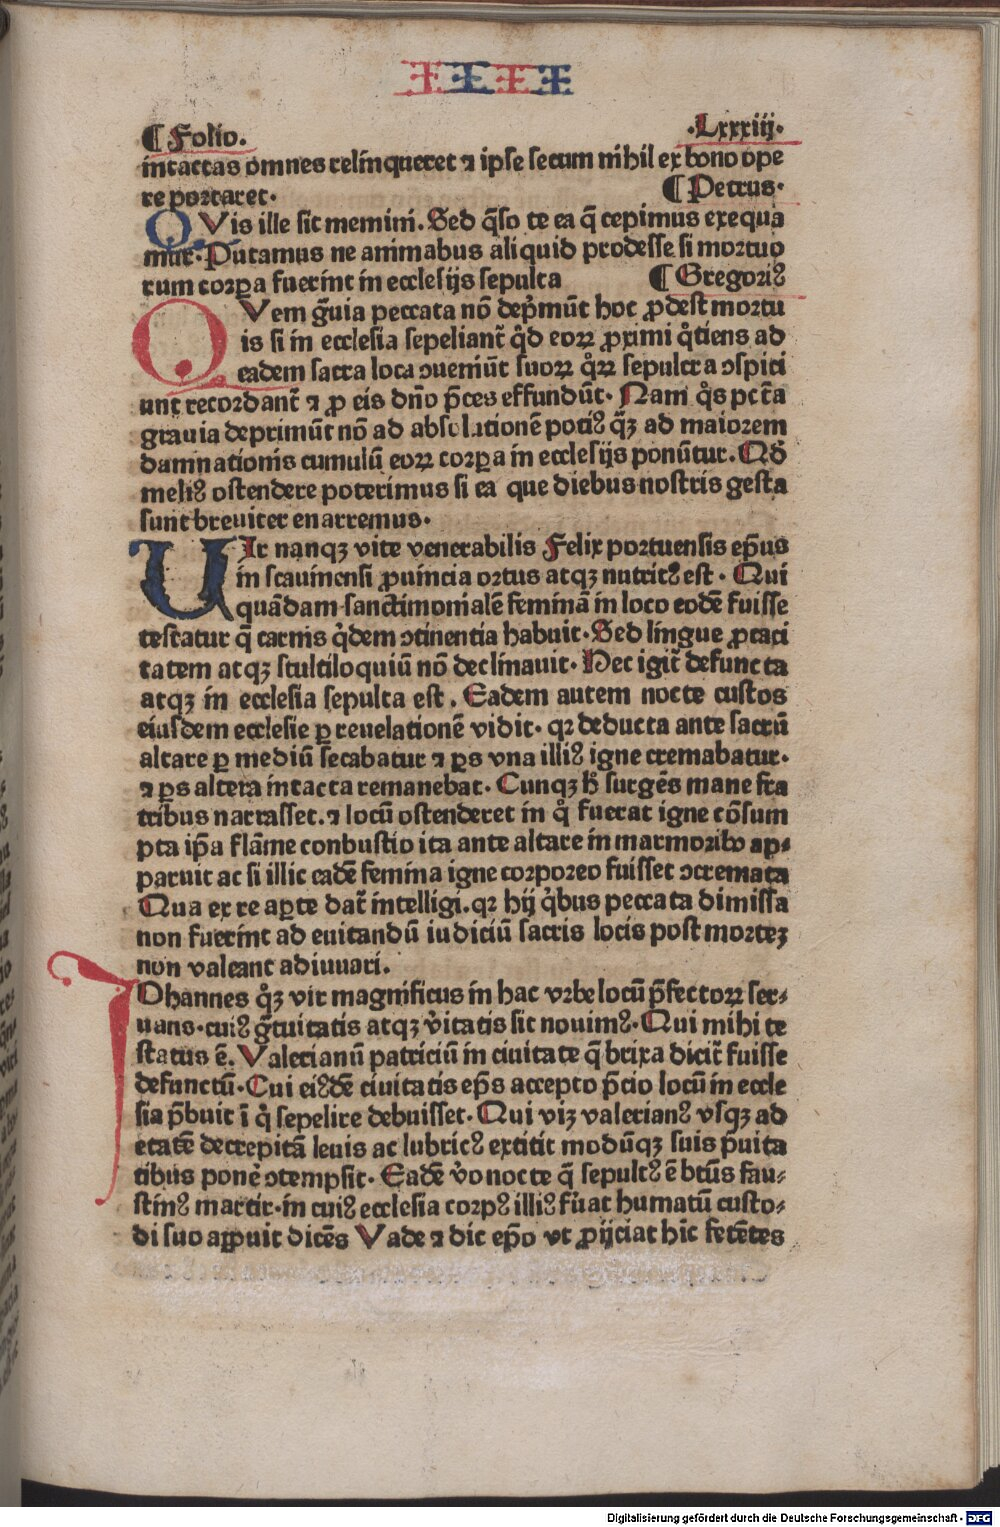 IIII
¶ Folio. .Lxxxiij.
intactas omnes relinqueret ⁊ ipse secum nihil ex bono ope
re portaret. ¶ Petrus.
QVis ille sit memini. Sed q̄so te ea q̄ cepimus exequa
mur. Putamus ne animabus aliquid prodesse si mortuo
rum corꝑa fuerint in ecclesijs sepulta ¶ Gregoriꝰ
QVem gͣuia peccata nō dep̄mūt hoc ꝓdest mortu
is si in ecclesia sepeliant̄ qd̄ eoꝝ ꝓximi qͦtiens ad
eadem sacra loca ↄueniūt suoꝝ qͦꝝ sepulcra ↄspici
unt recordant̄ ⁊ ꝓ eis dn̄o p̄ces effundūt. Nam qͦs pct̄a
grauia deprimūt nō ad absolutionē potiꝰ qͣꝫ ad maiorem
damnationis cumulū eoꝝ corꝑa in ecclesijs ponūtur. Qd̄
meliꝰ ostendere poterimus si ea que diebus nostris gesta
sunt breuiter enarremus.
UIr nanqꝫ vite venerabilis Felix portuensis ep̄us
in scauinensi ꝓuincia ortus atqꝫ nutritꝰ est. Qui
quādam sanctimonialē feminā in loco eodē fuisse
testatur q̄ carnis qͥdem ↄtinentia habuit. Sed lingue ꝓcaci
tatem atqꝫ stultiloquiū nō declinauit. Hec igit̄ defuncta
atqꝫ in ecclesia sepulta est. Eadem autem nocte custos
eiusdem ecclesie ꝑ reuelationē vidit. qꝛ deducta ante sacrū
altare ꝑ mediū secabatur ⁊ ꝑs vna illiꝰ igne cremabatur.
⁊ ꝑs altera intacta remanebat. Cunqꝫ h̄ surgēs mane fra
tribus narrasset. ⁊ locū ostenderet in qͦ fuerat igne cōsum
pta ip̄a flāme conbustio ita ante altare in marmoribꝰ ap⸗
paruit ac si illic eadē femina igne corporeo fuisset ↄcremata
Qua ex re aꝑte dat̄ intelligi. qꝛ hij qͥbus peccata dimissa
non fuerint ad euitandū iudiciū sacris locis post morteꝫ
non valeant adiuuari.
IOhannes qͦꝫ vir magnificus in hac vrbe locū p̄fectoꝝ ser⸗
uans. cuiꝰ gͣuitatis atqꝫ v̓itatis sit nouimꝰ. Qui mihi te
status ē. Valerianū patriciū in ciuitate q̄ brixa dicit̄ fuisse
defunctū. Cui eiꝰdē ciuitatis ep̄s accepto p̄cio locū in eccle
sia p̄buit ī qͦ sepelire debuisset. Qui viꝫ valerianꝰ vsqꝫ ad
etatē decrepitā leuis ac lubricꝰ extitit modūqꝫ suis p̄uita
tibus pone̓ ↄtempsit. Eadē v̓o nocte q̄ sepultꝰ ē btūs fau⸗
stinꝰ martir. in cuiꝰ ecclesia corpꝰ illiꝰ fu̓at humatū custo⸗
di suo aꝑpuit dicēs Vade ⁊ dic ep̄o vt ꝓijciat hīc fetētes
Digitalisierung gefördert durch die Deutsche Forschungsgemeinschaft - DFG